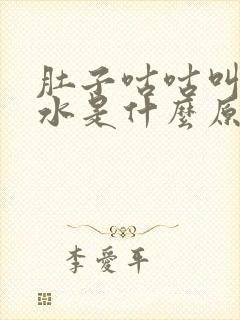 肚子咕咕叫
水是什麼原
李愛平